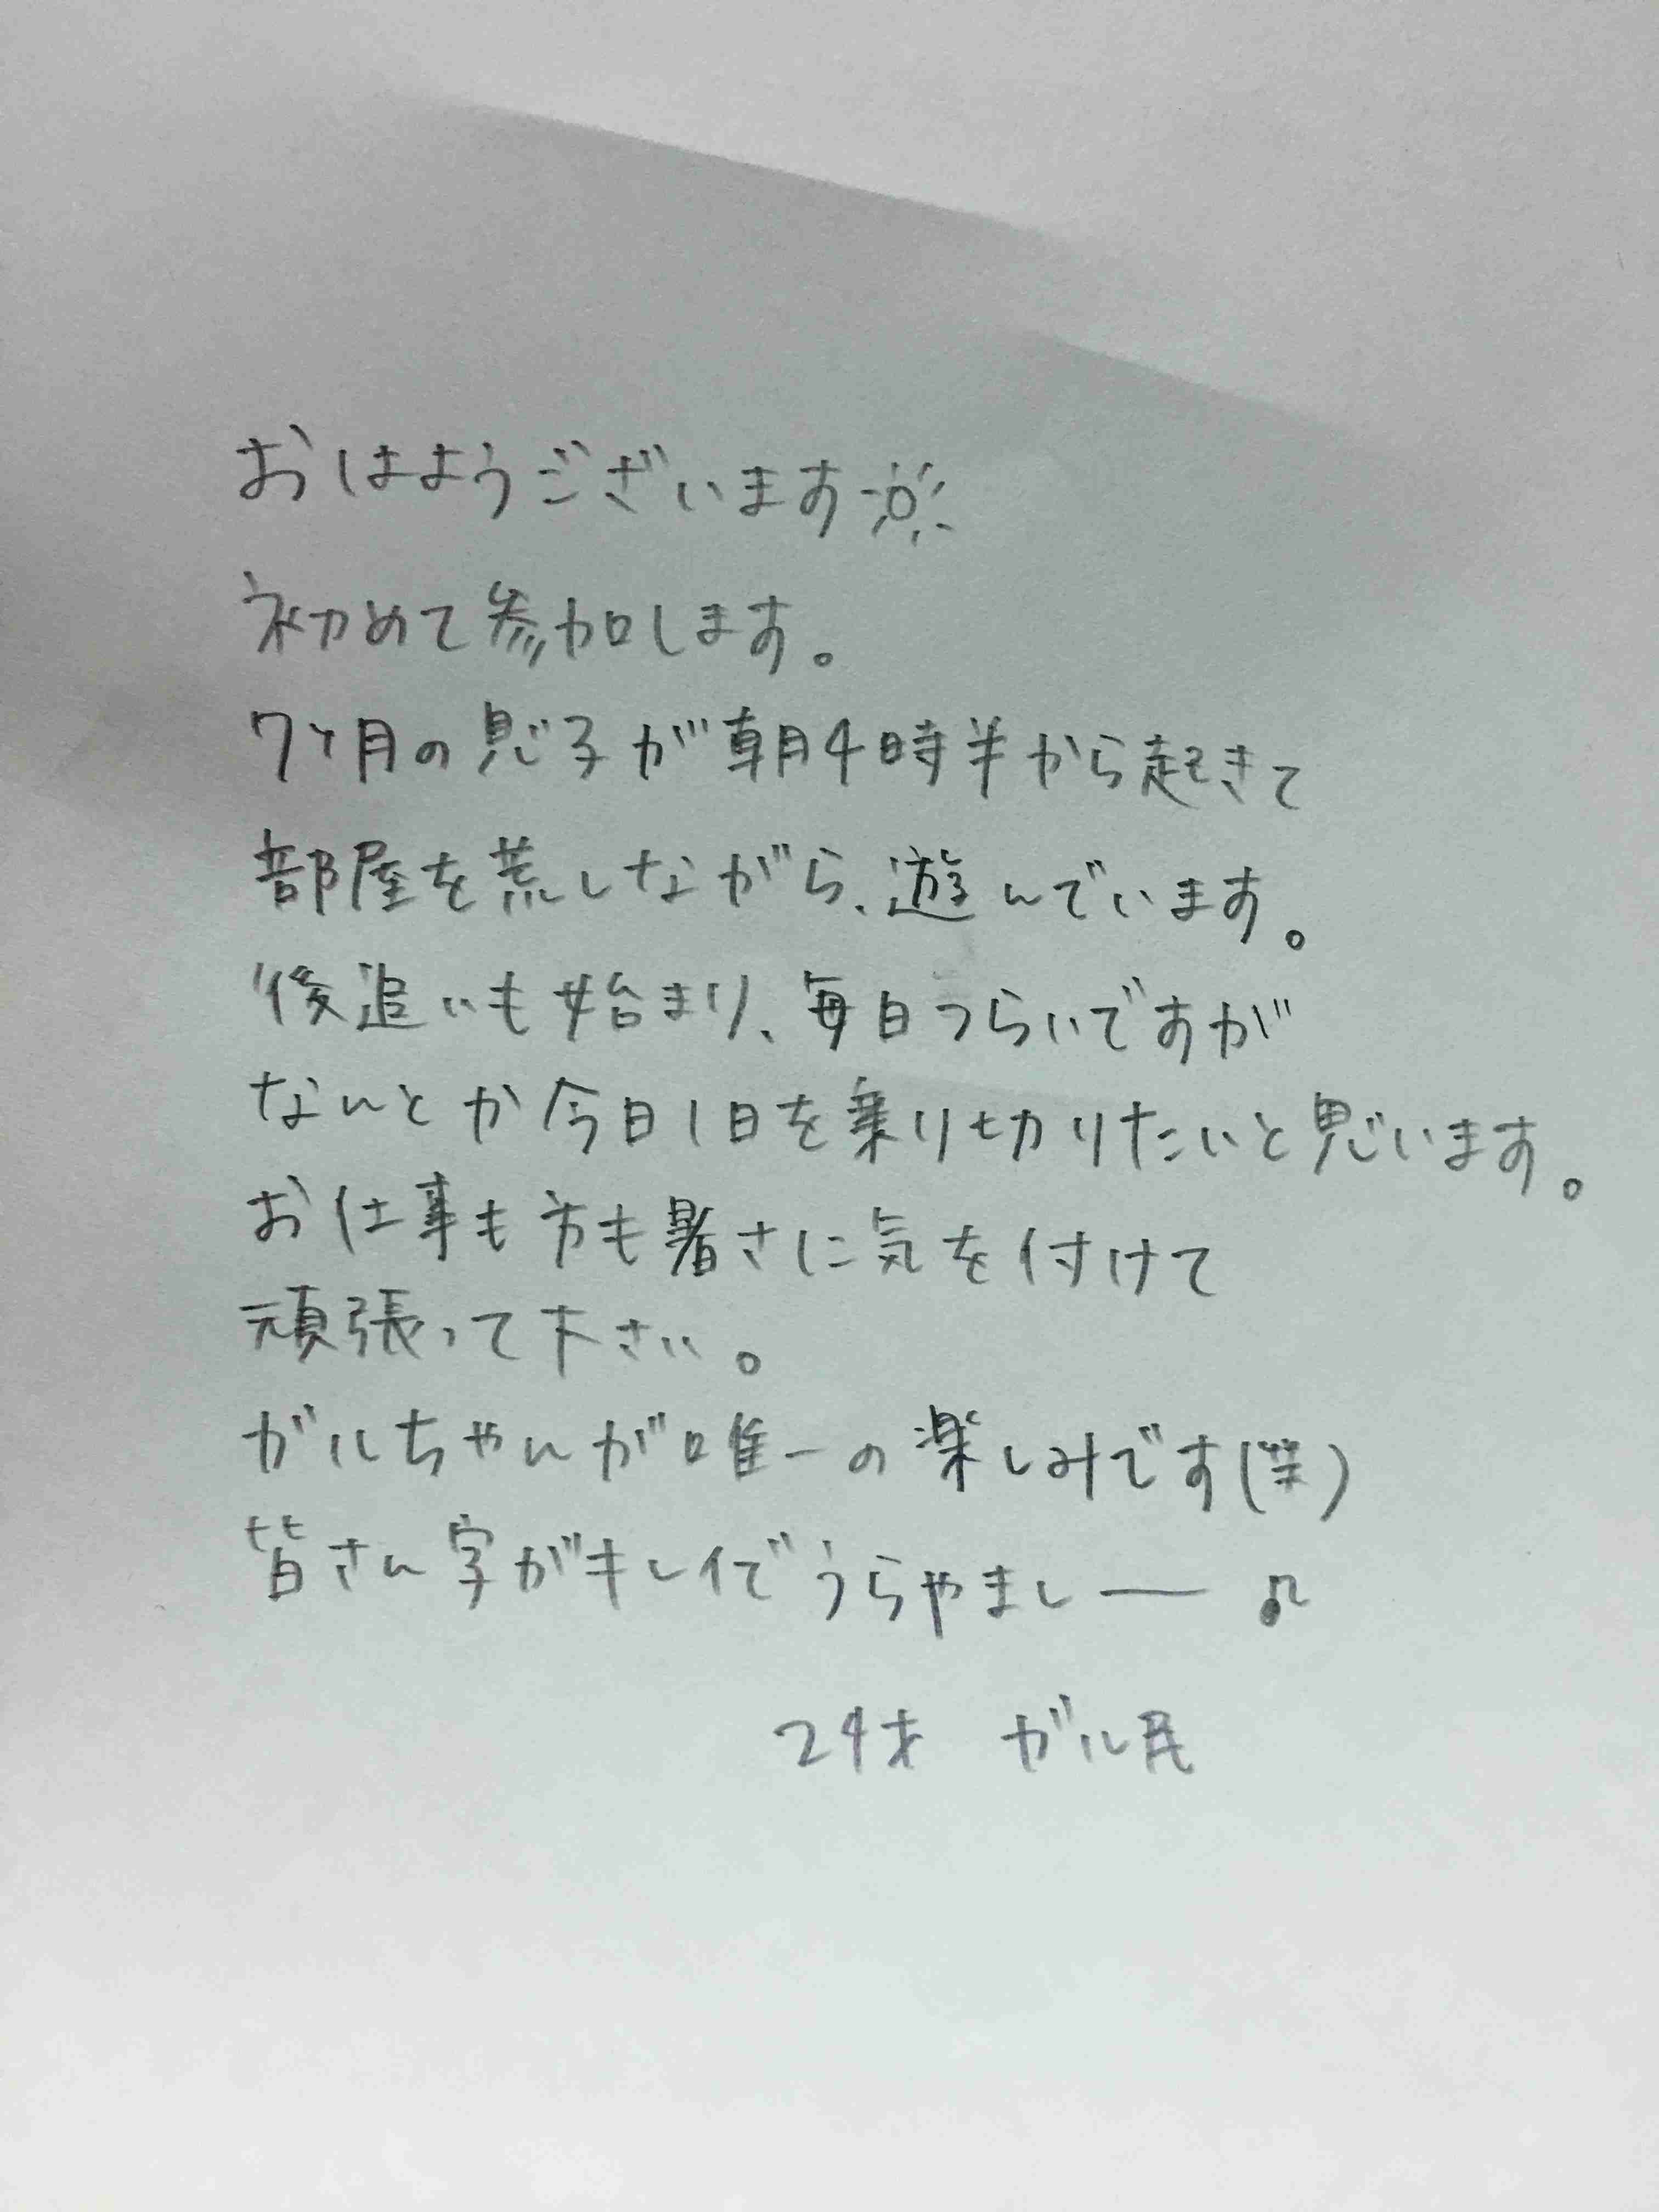 おはようございます☀
初めて参加します。
7ヶ月の息子が朝4時半から起きて
部屋を荒しながら、遊んでいます。
後追いも始まり、毎日つらいですが
なんとか今日1日を乗り切りたいと思います。
お仕事も方も暑さに気を付けて
頑張って下さい。
ガルちゃんが唯一の楽しみです(笑)
皆さん字がキレイでうらやましー♪
24才 ガル民